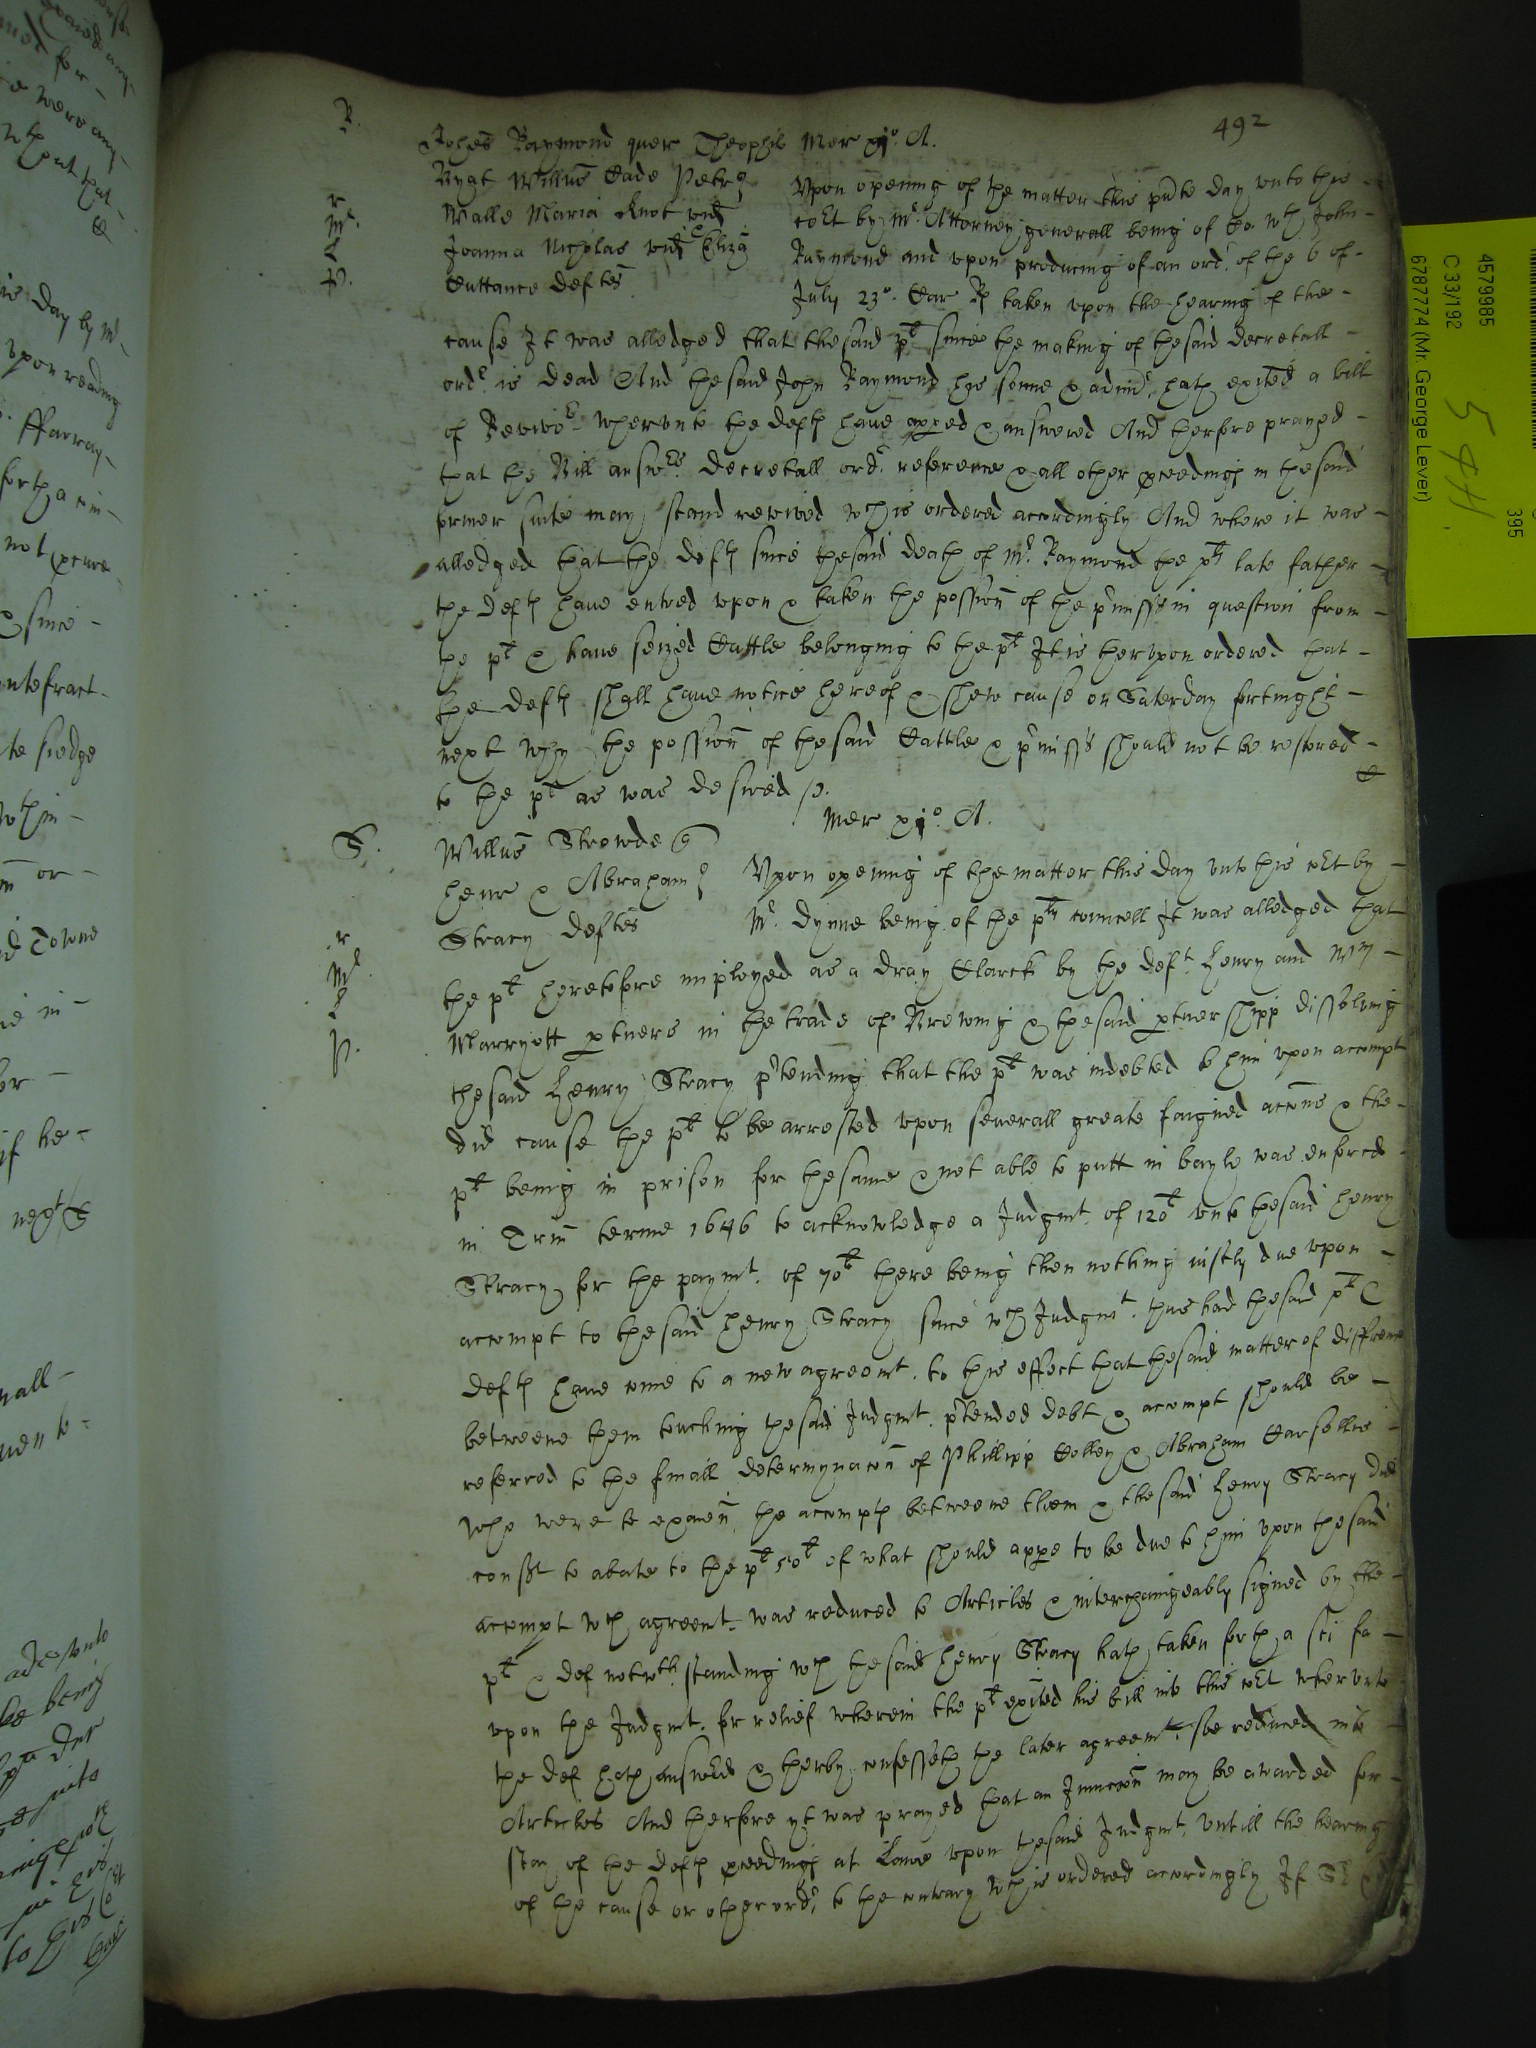 492
R.
Johes Raymond quer Theophil Mer xjo. A.
Rygt Willus Cade Petr
Walle Maria Knot wid
Joanna Nicholas wid Eliz
Cuttance Deftes
Upon opening of the matter this pnte day unto this
cort by Mr. Attorney generall being of Co. wth John
Raymond and upon producing of an ordr. of the 6 of
July 23o. Car R taken upon the hearing of the
cause It was alledged that the said plt since the making of the said decretall
ordr is dead And the said John Raymond his sonne & admr. hath exited a bill
of Revivor wherunto the defts have apped & answered And therfore prayed
that the Bill answers decretall ordr. reference & all other pceedings in the said
former suite may stand revived wch is ordered accordingly And where it was
alledged that the defts since the said death of Mr. Raymond the plts late father
the defts have entred upon & taken the possion of the pmisses in question from
the plt & have seized Cattle belonging to the plt It is therupon ordered that
the defts shall have notice hereof & shew cause on Saterday fortnight
next why the possion of the said Cattle & pmisses should not be restored
to the plt as was desired p.
Mer xjo. A.
S.
Willus Strowde q
Henr & Abraham
Stracy deftes
Upon opening of the matter this day unto this cort by
Mr. Dynne being of the plts councell It was alledged that
the plt heretofore imployed as a dray Clarck by the deft. Henry and Wm
Marryott ptners in the trade of Brewing & the said ptnershipp dissolving
the said Henry Stracy ptending that the plt was indebted to him upon accompt
did cause the plt to be arrested upon severall greate faigned accons & the
plt being in prison for the same & not able to putt in bayle was enforced
in Trin terme 1646 to acknowledge a Judgmt. of 120l unto the said Henry
Stracy for the paymt. of 70l there being then nothing justly due upon
accompt to the said Henry Stracy since wch Judgmt. thus had the said plt &
defts have come to a new agreemt. to this effect that the said matter of diffrence
betweene them touching the said Judgmt. ptended debt & accompt should be
referred to the finall determynacon of Phillipp Colley & Abraham Carsellis
who were to examin the accompts betweene them & the said Henry Stracy did
consent to abate to the plt 50l of what should appe to be due to him upon the said
accompt wch agreemt. was reduced to Articles & interchaingeably signed by the
plt & def notwthstanding wch the said Henry Stracy hath taken forth a sci fa
upon the Judgmt. for relief wherein the plt exited his bill into this cort wherunto
the def hath answered & therby confesseth the later agreemt. soe reduced into
Articles And therfore yt was prayed that an Injunccon may be awarded for
stay of the defts pceedings at Lawe upon the said Judgmt. untill the hearing
of the cause or other ordr. to the contrary wch is ordered accordingly If
4579985
C 33/192
6787774 (Mr. George Lever)
395